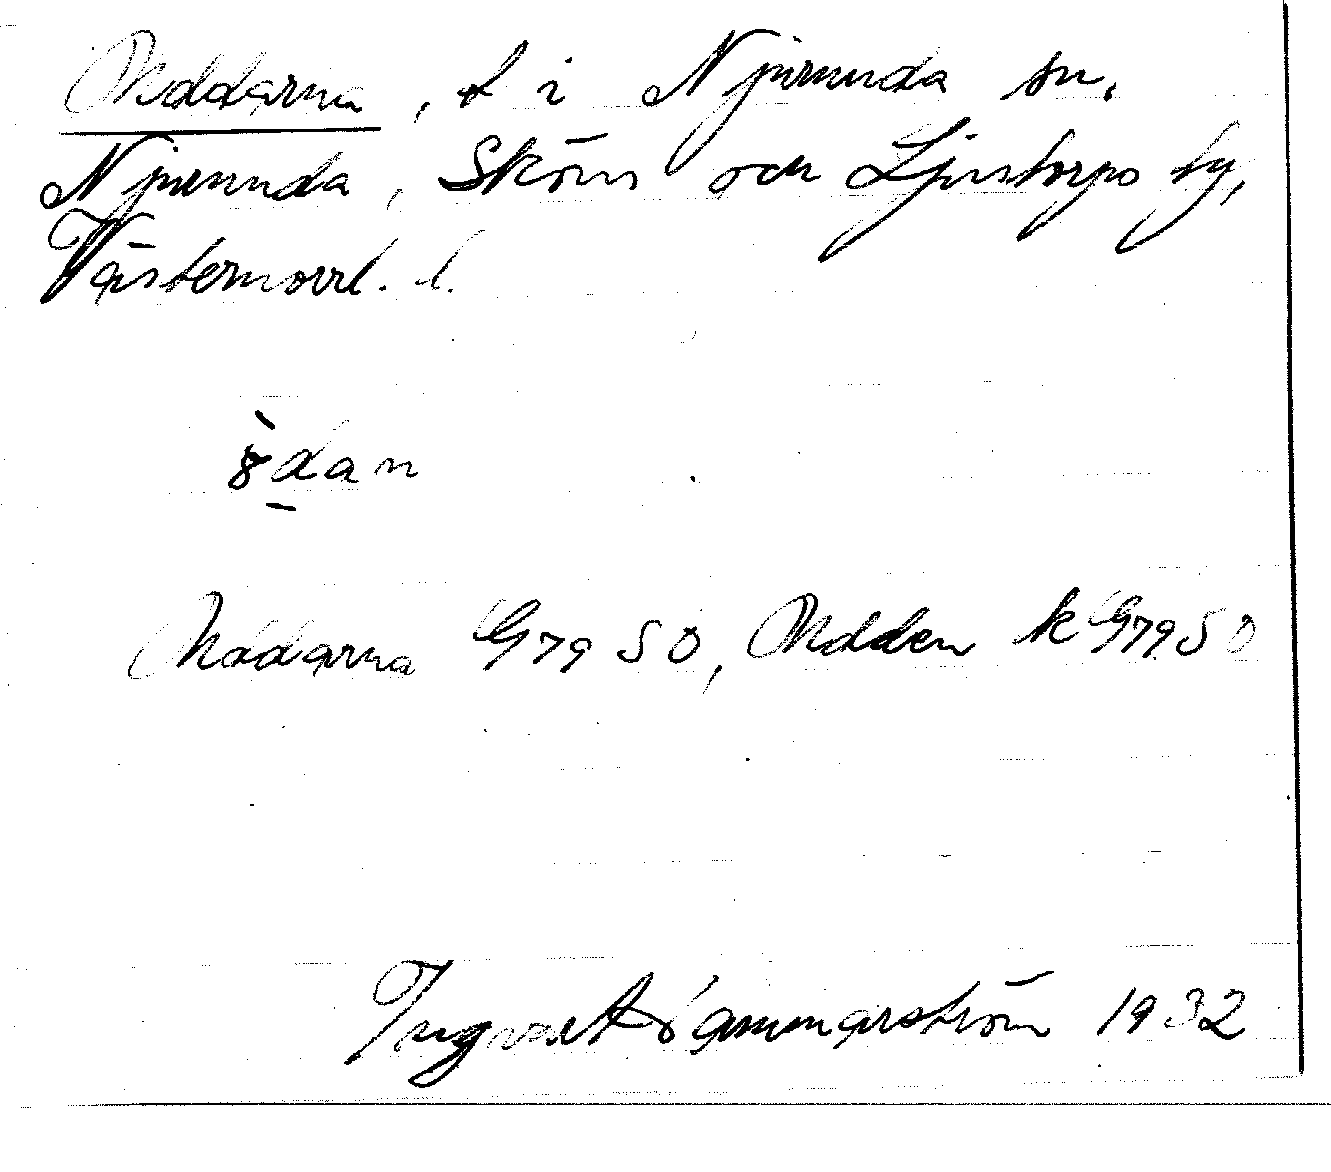 Uddarna, t i Njurunda sn.
Njurunda, Sköns och Ljustorps tg,
Västernorrl. l.
dan
Uddarna G 79 SO, Udden k G 79 SO
Ingvar Hammarström 1932